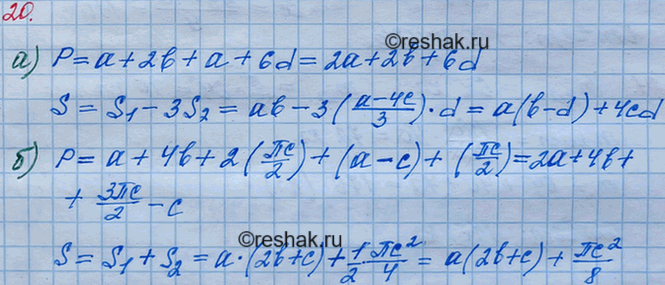 20.
©reshak.ru
а) P = a + 2b + a + 6d = 2a + 2b + 6d
S = S₁ - 3S₂ = ab - 3((a-4c)/3)·d = a(b-d) + 4cd
б) P = a + 4b + 2(πc/2) + (a-c) + (πc/2) = 2a + 4b +
+ 3πc/2 - c
S = S₁ + S₂ = a·(2b+c) + 1/2·πc²/4 = a(2b+c) + πc²/8
©reshak.ru